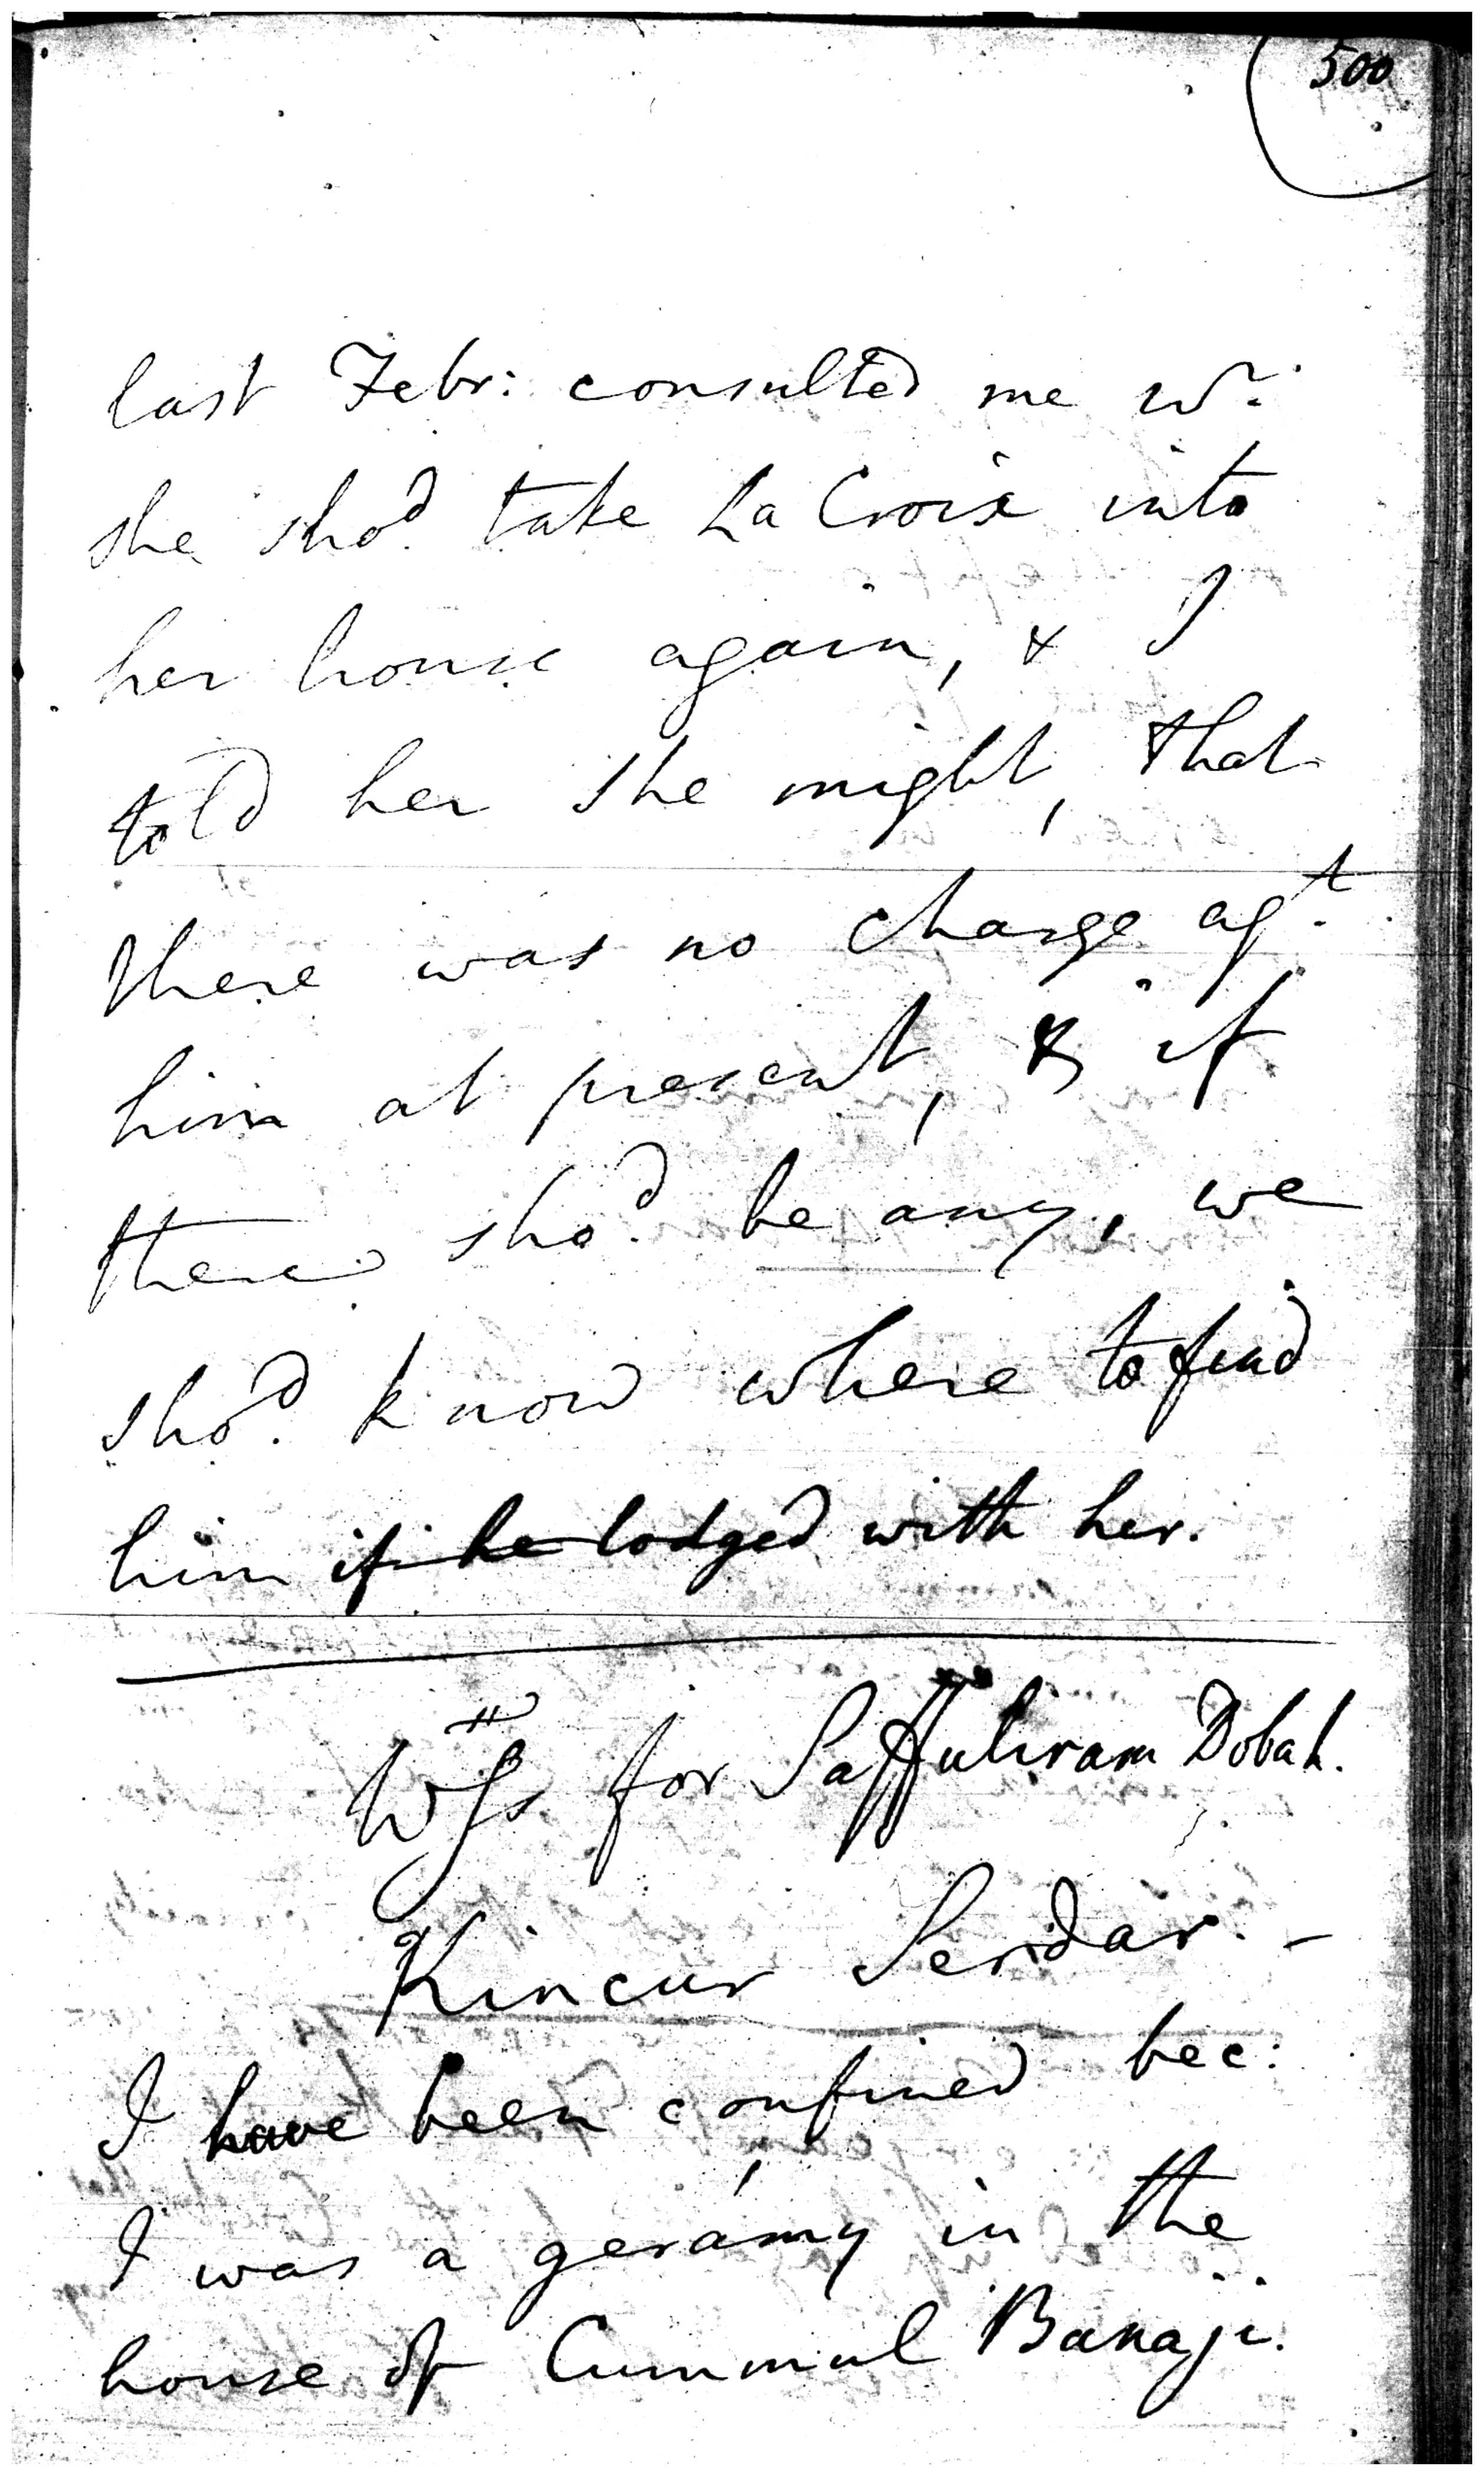 500
last Febr: consulted me wr:
she shod. take La Croix into
her house again, & I
told her she might, that
there was no charge agt.
him at present, & if
there shod. be any, we
shod. know where to find
him if he lodged with her.
for Saffuliram Dobah.
Kincur Serdar. -
I have been confined bec:
I was a geramy in the
house of Cummul Banaji.